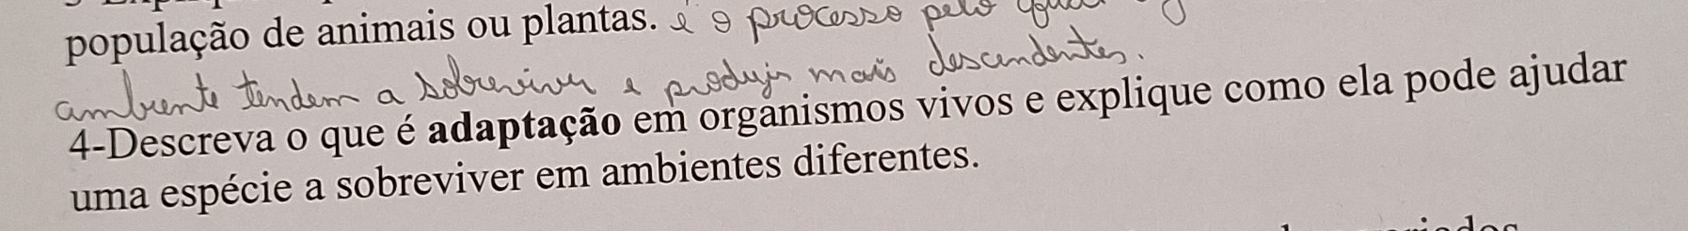 população de animais ou plantas. é o processo pelo qual
ambiente tendem a sobreviver e produzir mais descendentes.
4-Descreva o que é adaptação em organismos vivos e explique como ela pode ajudar
uma espécie a sobreviver em ambientes diferentes.